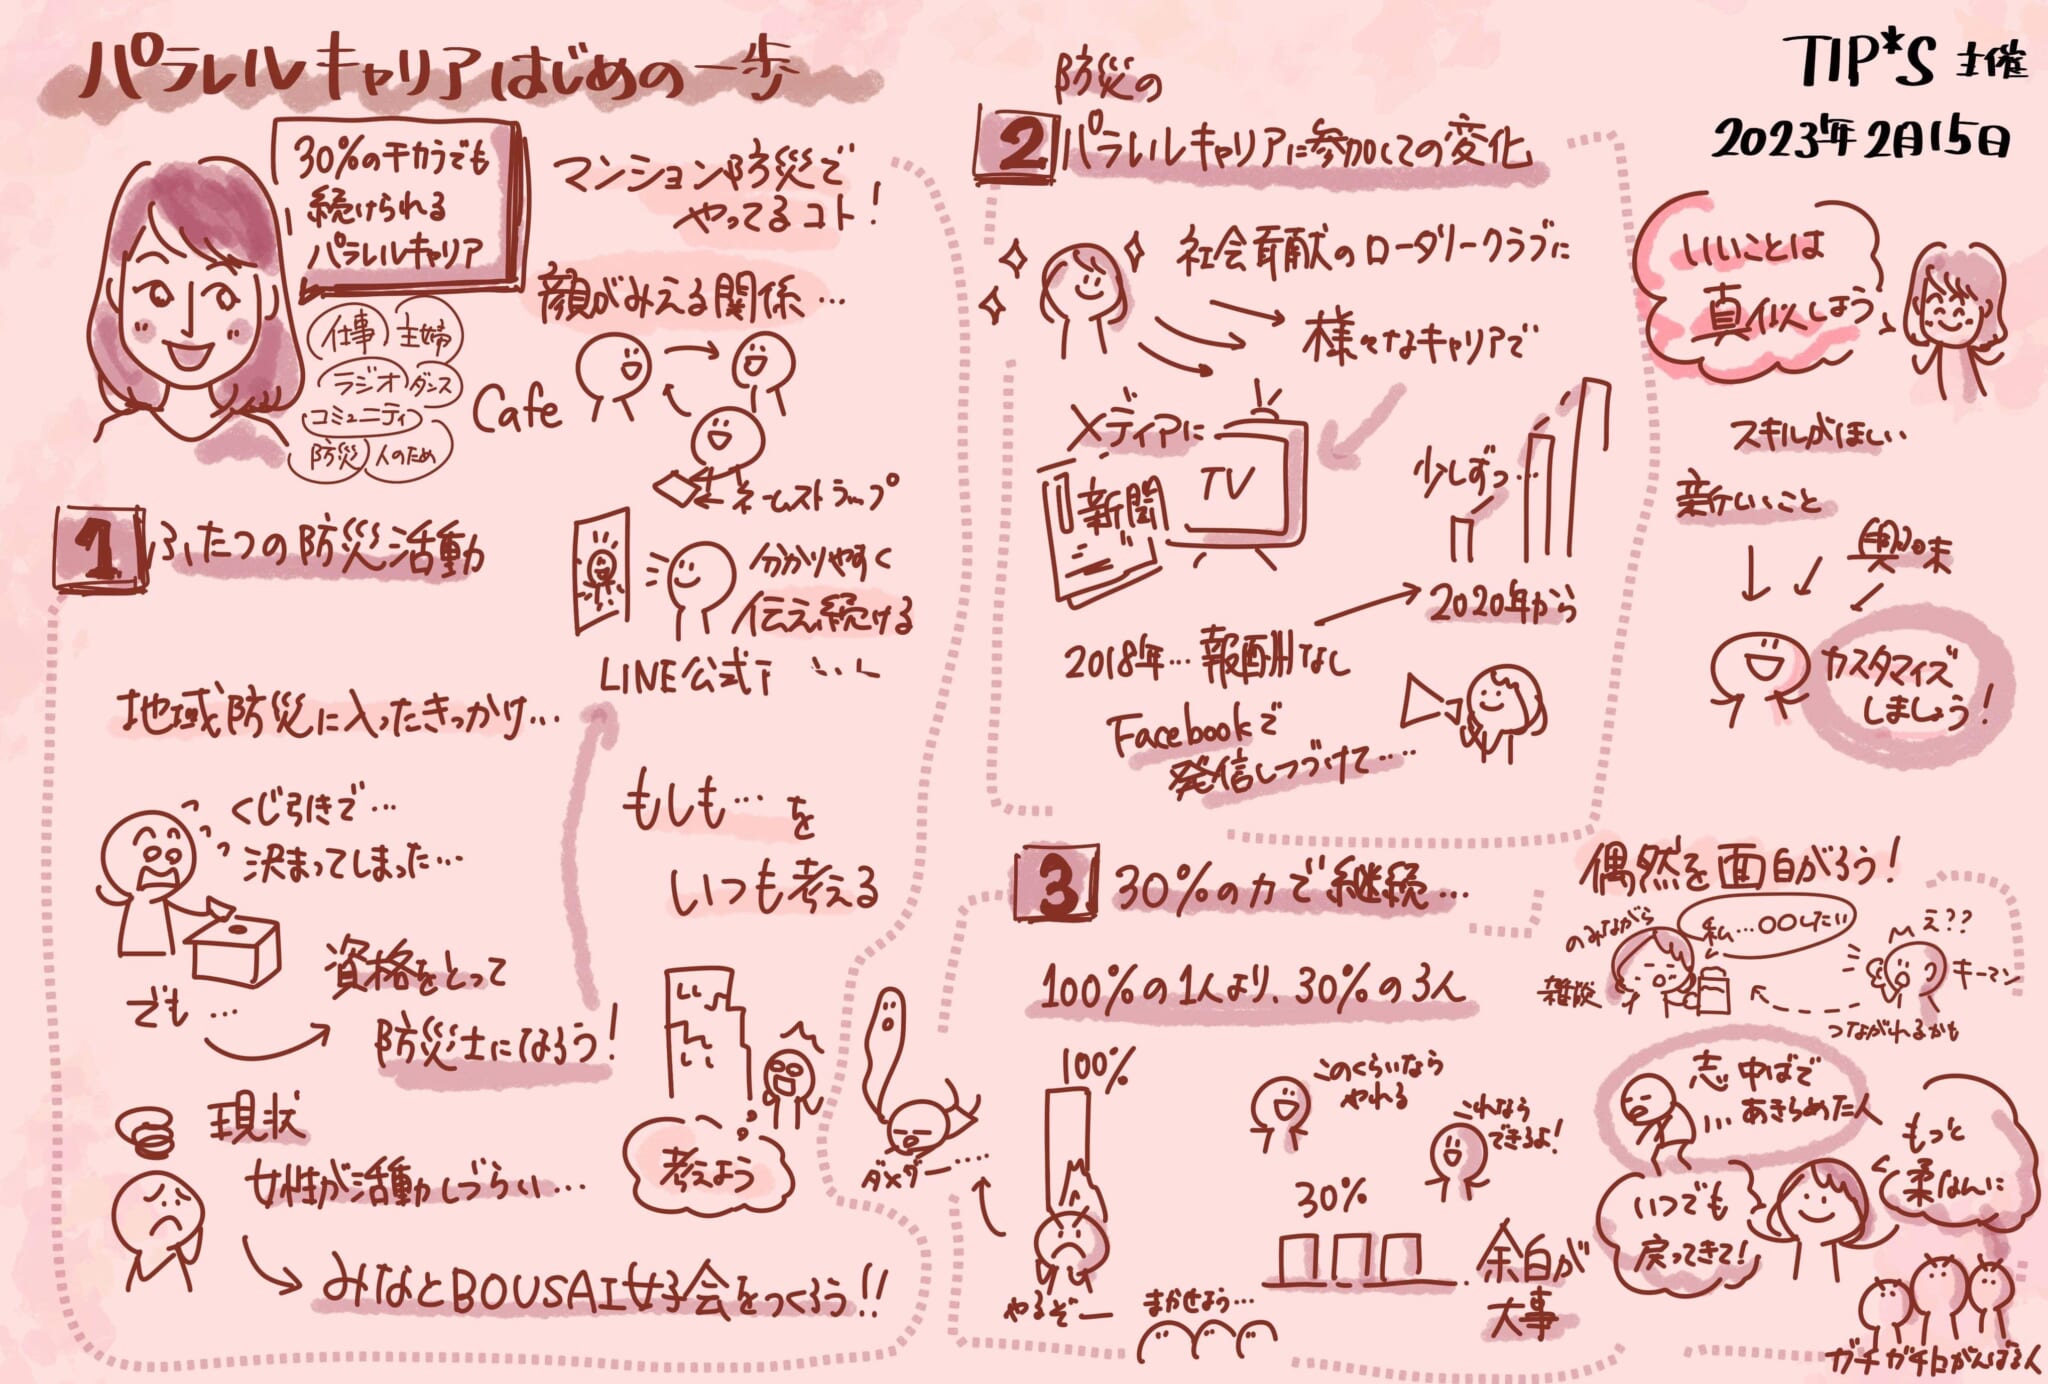 パラレルキャリアはじめの一歩
TIP*S 主催
2023年2月15日
30%のチカラでも
続けられる
パラレルキャリア
仕事
主婦
ラジオ
ダンス
コミュニティ
防災
人のため
マンション防災で
やってるコト!
顔がみえる関係…
Cafe
ネームストラップ
分かりやすく
伝え続ける
LINE公式
1
ふたつの防災活動
地域防災に入ったきっかけ…
くじ引きで…
決まってしまった…
でも…
資格をとって
防災士になろう!
もしも…を
いつも考える
考えよう
現状
女性が活動しづらい…
みなとBOUSAI女子会をつくろう!!
2
防災の
パラレルキャリアに参加しての変化
社会貢献のロータリークラブに
様々なキャリアで
メディアに
新聞
TV
少しずつ…
2020年から
2018年…報酬なし
Facebookで
発信しつづけて…
いいことは
真似しよう
スキルがほしい
新しいこと
興味
カスタマイズ
しましょう!
3
30%の力で継続…
100%の1人より、30%の3人
100%
やるぞー
ダメダー…
まかせよう…
このくらいなら
やれる
これなら
できるよ!
30%
余白が
大事
偶然を面白がろう!
のみながら
雑談
私…〇〇したい
え??
キーマン
つながれるかも
志中ばで
…あきらめた人
いつでも
戻ってきて!
もっと
柔なんに
ガチガチにがんばる人